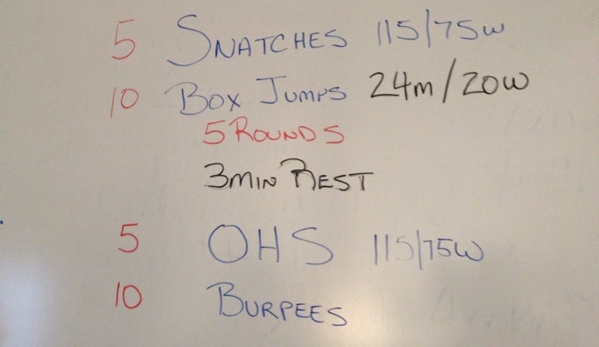 5 SNATCHES 115/75W
10 BOX JUMPS 24m/20W
5 ROUNDS
3MIN REST
5 OHS 115/75W
10 BURPEES